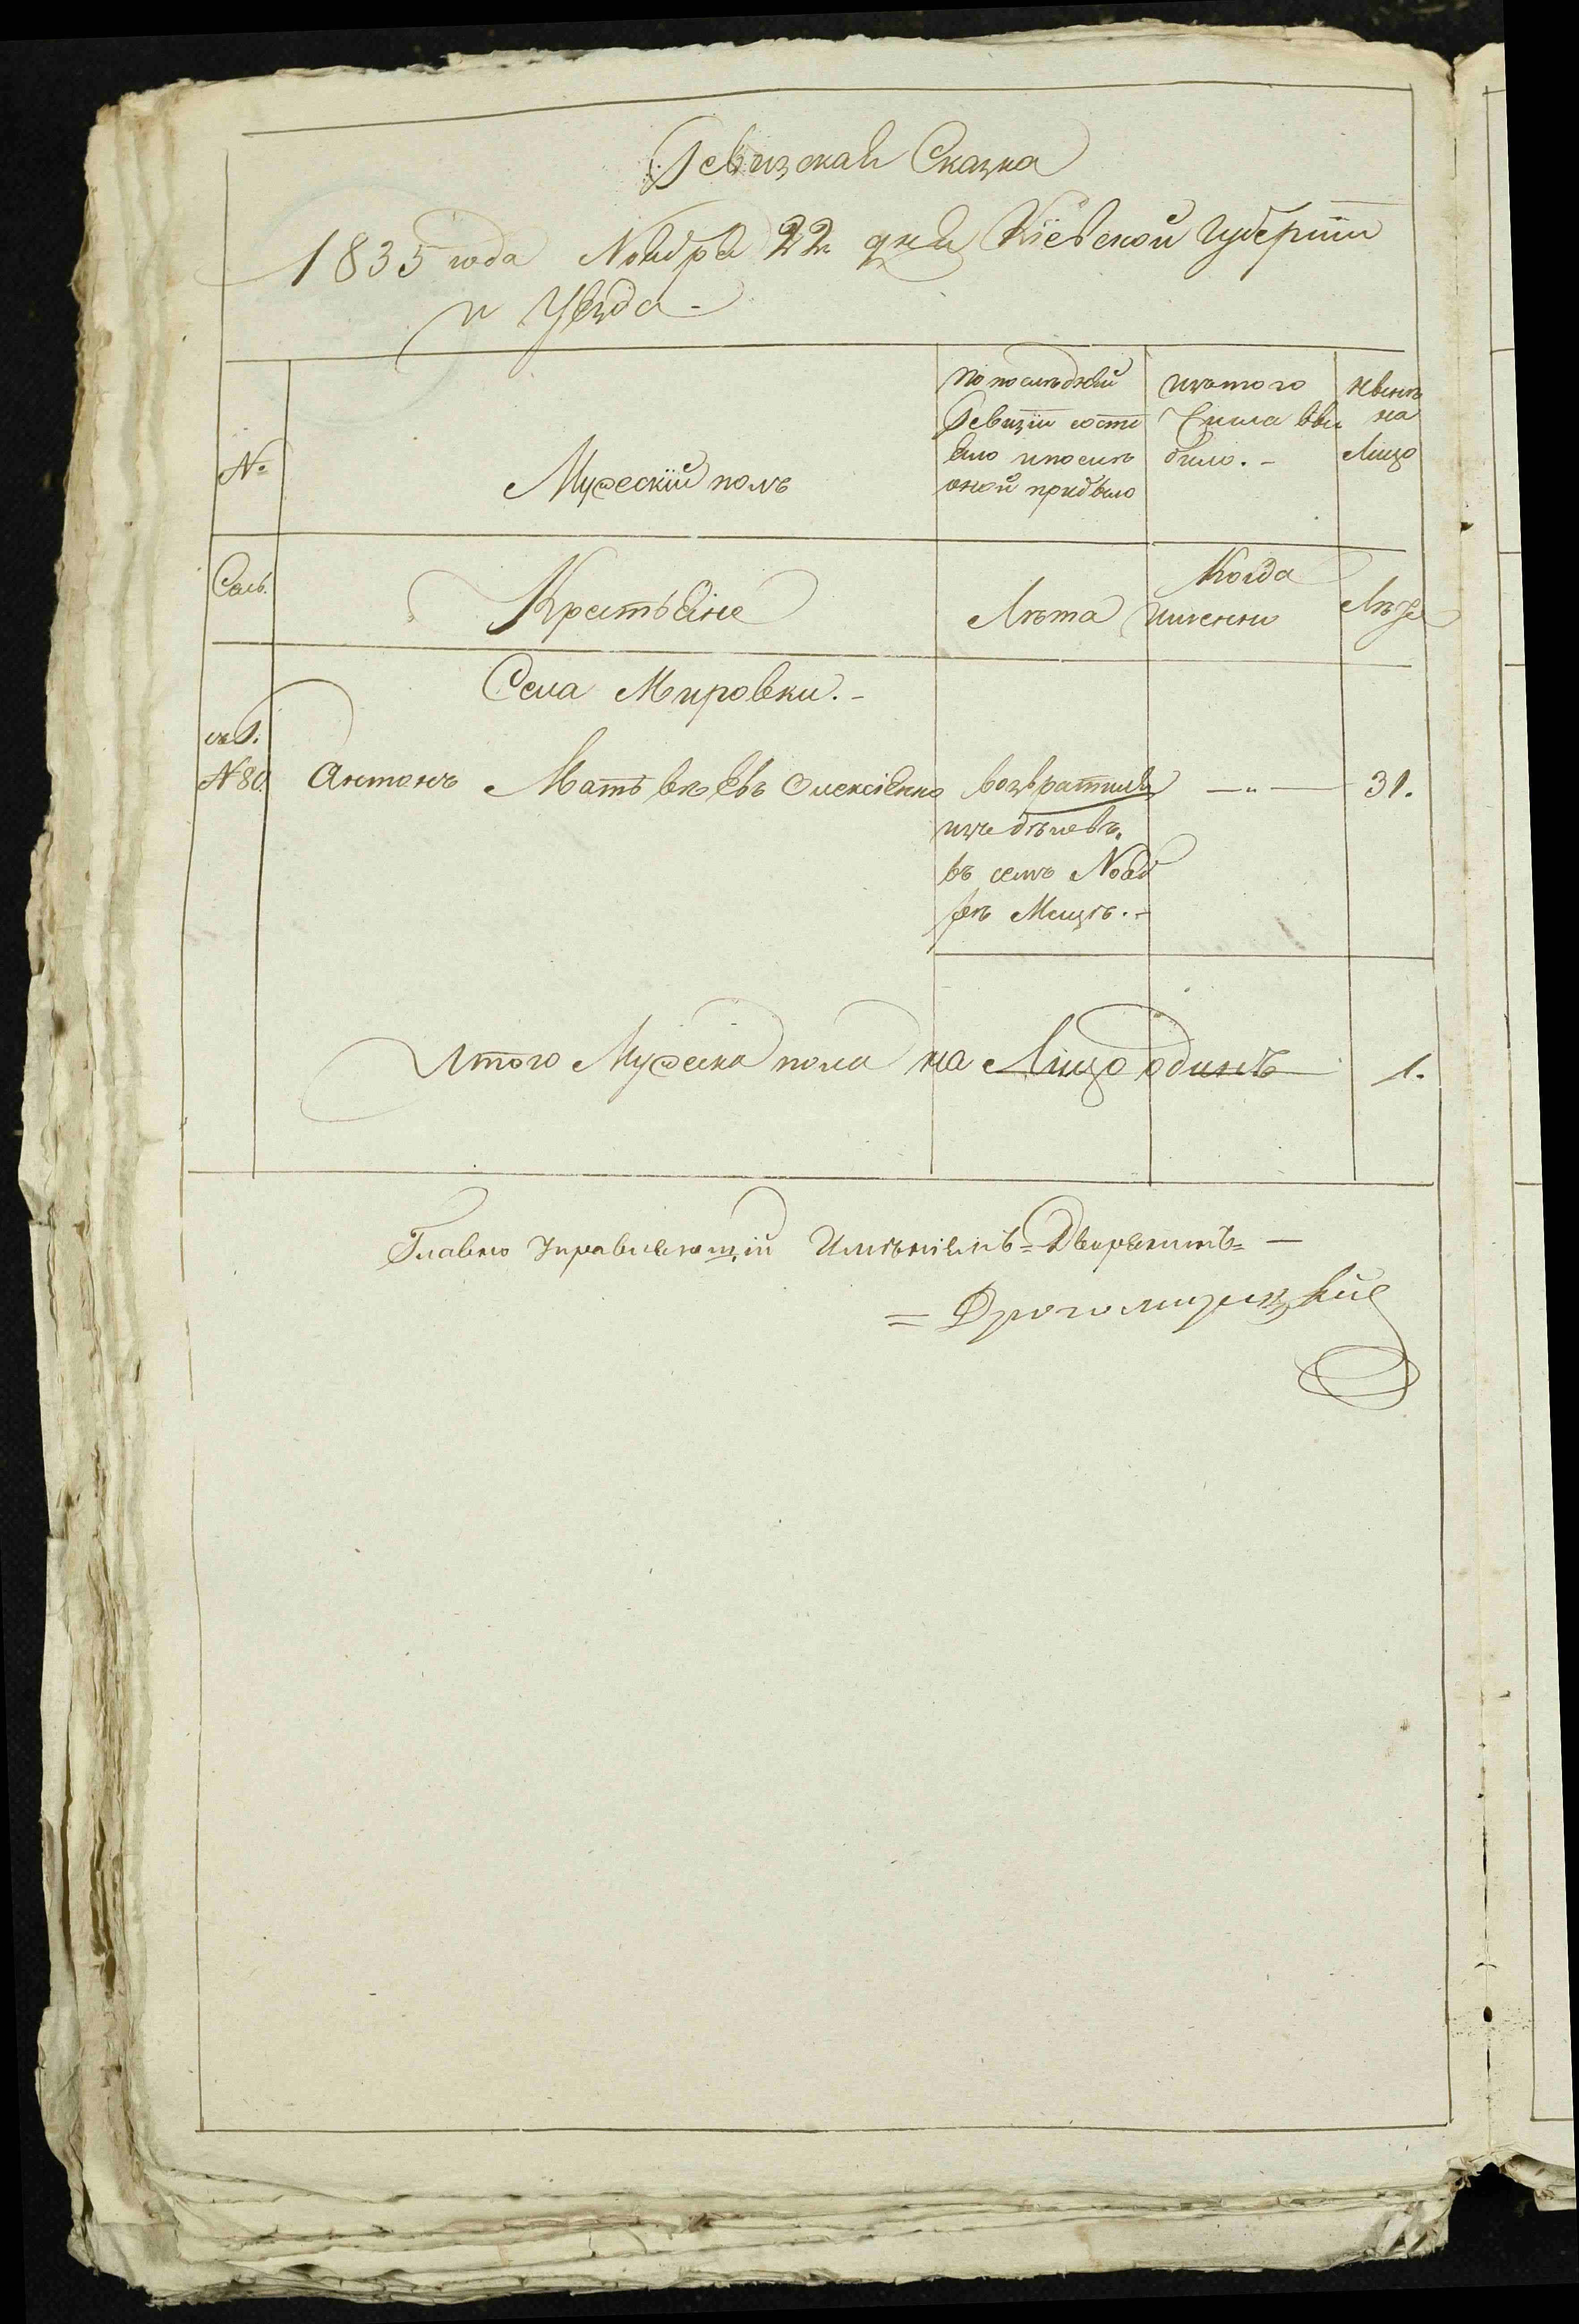 Ревизская Сказка
1835 года Ноября 22 дня Кіевской Губерніи
и Уезда -
№
Мужескій полъ
По последній
Ревизіи состо
яло и после
оной прибыло
изъ того
Числа вы
было. -
Ныне
на
Лицо
Сем.
Крестьяне
Лѣта
Когда
именно
Лѣта
Села Мировки. -
№ 80.
Антонъ Матвѣевъ Олексіенко
возвратился
изъ бѣговъ
въ семъ Нояб
ре Месце. -
— „ —
31.
Итого Мужеска пола на Лицо одинъ
1.
Главно Управляющій Имѣніемъ = Дворянинъ = —
= Дрогомирецкій